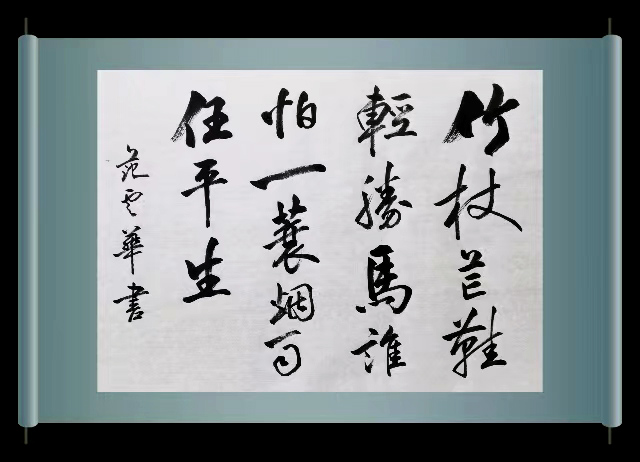 竹杖芒鞋
輕勝馬誰
怕一蓑烟雨
任平生
范云華書